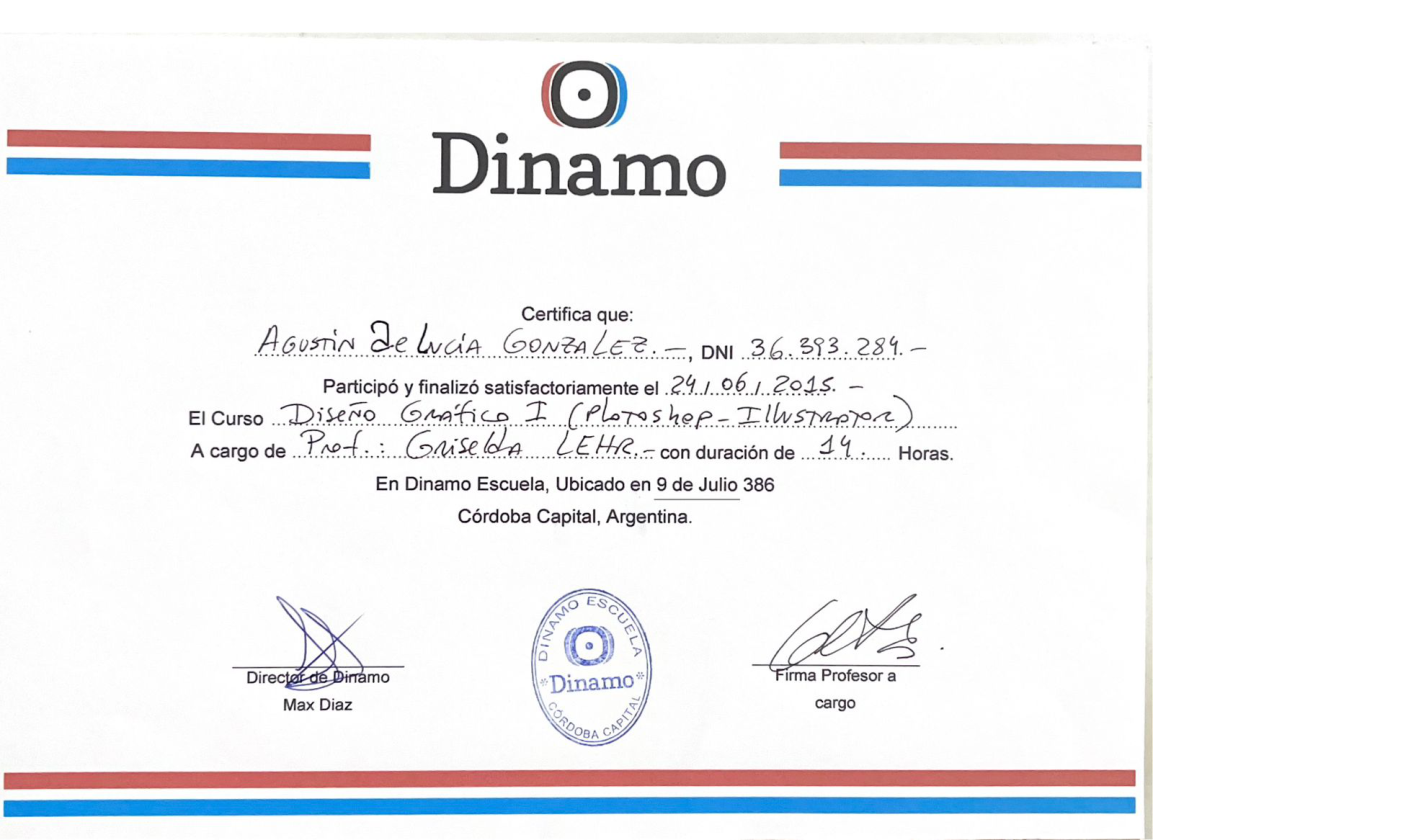 Dinamo
Certifica que:
Agustin De Lucía GONZALEZ.-, DNI 36.393.284.-
Participó y finalizó satisfactoriamente el 24/06/2015.-
El Curso Diseño Gráfico I (Photoshop-Illustrator)
A cargo de Prof.: Griselda LEHR.- con duración de 14. Horas.
En Dinamo Escuela, Ubicado en 9 de Julio 386
Córdoba Capital, Argentina.
Director de Dinamo
Max Diaz
DINAMO ESCUELA
*Dinamo*
CÓRDOBA CAPITAL
Firma Profesor a
cargo